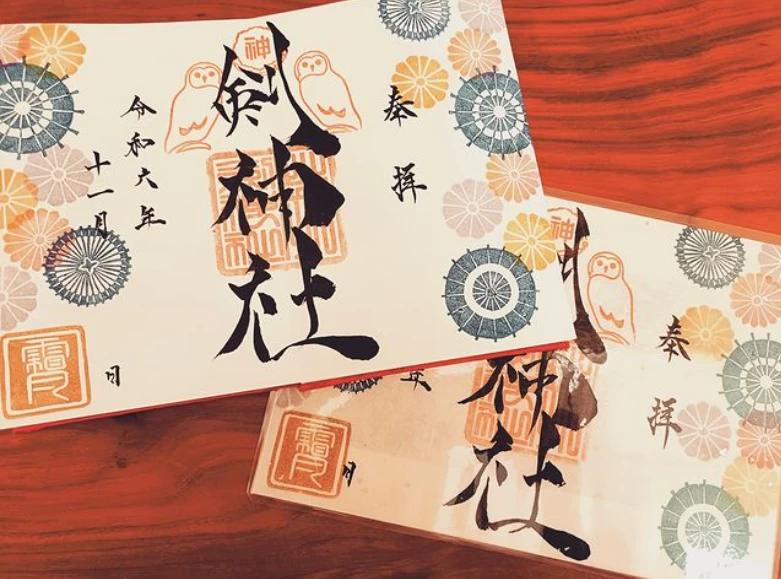 奉拝
神
剣神社
令和六年
十一月
日
奉拝
神
神社
日